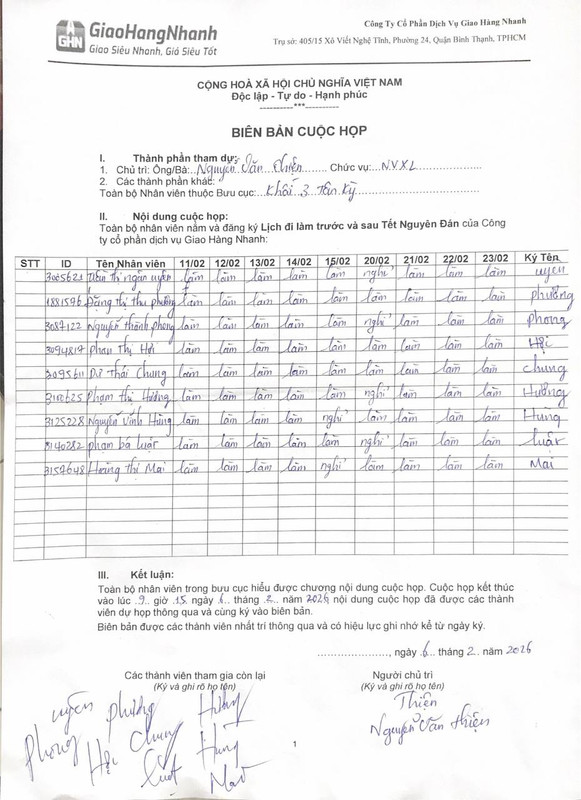 GiaoHangNhanh
GHN
Giao Siêu Nhanh, Giá Siêu Tốt
Công Ty Cổ Phần Dịch Vụ Giao Hàng Nhanh
Trụ sở: 405/15 Xô Viết Nghệ Tĩnh, Phường 24, Quận Bình Thạnh, TPHCM
CỘNG HOÀ XÃ HỘI CHỦ NGHĨA VIỆT NAM
Độc lập - Tự do - Hạnh phúc
----------***----------
BIÊN BẢN CUỘC HỌP
I. Thành phần tham dự:
1. Chủ trì: Ông/Bà: Nguyễn Văn Thiện Chức vụ: NVXL
2. Các thành phần khác:
Toàn bộ Nhân viên thuộc Bưu cục: Khối 3 Tân Kỳ
II. Nội dung cuộc họp:
Toàn bộ nhân viên nắm và đăng ký Lịch đi làm trước và sau Tết Nguyên Đán của Công
ty cổ phần dịch vụ Giao Hàng Nhanh:
STT ID Tên Nhân viên 11/02 12/02 13/02 14/02 15/02 20/02 21/02 22/02 23/02 Ký Tên
3005621 thị ngân uyên làm làm làm làm làm nghỉ làm làm làm uyên
1881596 Đặng thị thu phương làm làm làm làm làm làm làm làm làm phương
3087122 Nguyễn thành phong làm làm làm làm làm nghỉ làm làm làm phong
3094817 phan Thị Hợi làm làm làm làm làm làm làm làm làm Hợi
3095611 Thái Chung làm làm làm làm làm làm làm làm làm chung
3110625 Phạm thị Hường làm làm làm làm làm nghỉ làm làm làm Hường
3125228 Nguyễn Vinh Hùng làm làm làm làm nghỉ làm làm làm làm Hùng
3140282 phan bá luật làm làm làm làm làm nghỉ làm làm làm luật
3157648 Hoàng thị Mai làm làm làm làm nghỉ làm làm làm làm Mai
III. Kết luận:
Toàn bộ nhân viên trong bưu cục hiểu được chương nội dung cuộc họp. Cuộc họp kết thúc
vào lúc 9 giờ 15 ngày 6 tháng 2 năm 2026 nội dung cuộc họp đã được các thành
viên dự họp thông qua và cùng ký vào biên bản.
Biên bản được các thành viên nhất trí thông qua và có hiệu lực ghi nhớ kể từ ngày ký.
......................, ngày 6 tháng 2 năm 2026
Các thành viên tham gia còn lại
(Ký và ghi rõ họ tên)
Người chủ trì
(Ký và ghi rõ họ tên)
uyên phương Hường
phong Hợi Chung Hùng
luật Mai
Thiện
Nguyễn Văn Thiện
1